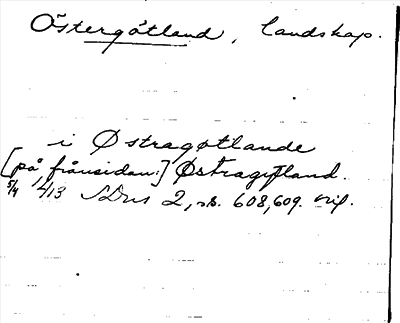 Östergötland, landskap.
i Østragøtlande
[på frånsidan:] Østragytland.
5/4 1413 SDns 2, s. 608,609. orig.